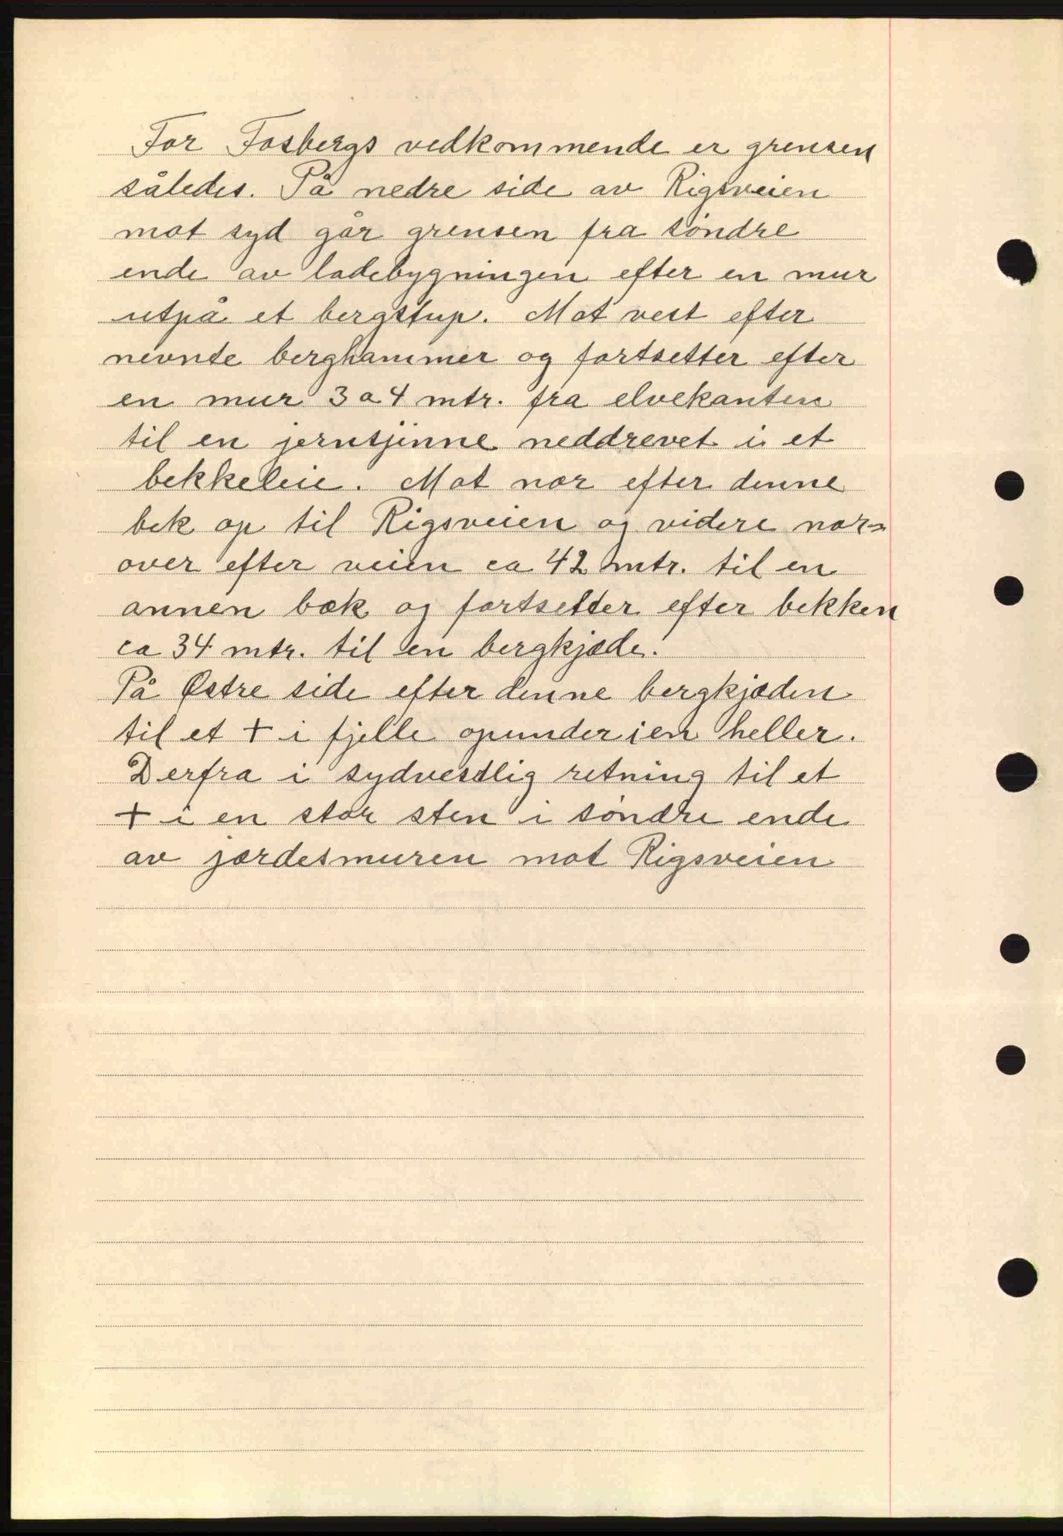 For Fosbergs vedkommende er grensen
således. På nedre side av Rigsveien
mot syd går grensen fra søndre
ende av ladebygningen efter en mur
utpå et bergstup. Mot vest efter
nevnte berghammer og fortsetter efter
en mur 3 a 4 mtr. fra elvekanten
til en jernsjinne neddrevet i et
bekkeleie. Mot nor efter denne
bek op til Rigsveien og videre nor-
over efter veien ca 42 mtr. til en
annen bæk og fortsetter efter bekken
ca 34 mtr. til en bergkjæde.
På Østre side efter denne bergkjæden
til et + i fjelle opunder ien heller.
Derfra i sydvestlig retning til et
+ i en stor sten i søndre ende
av jordesmuren mot Rigsveien